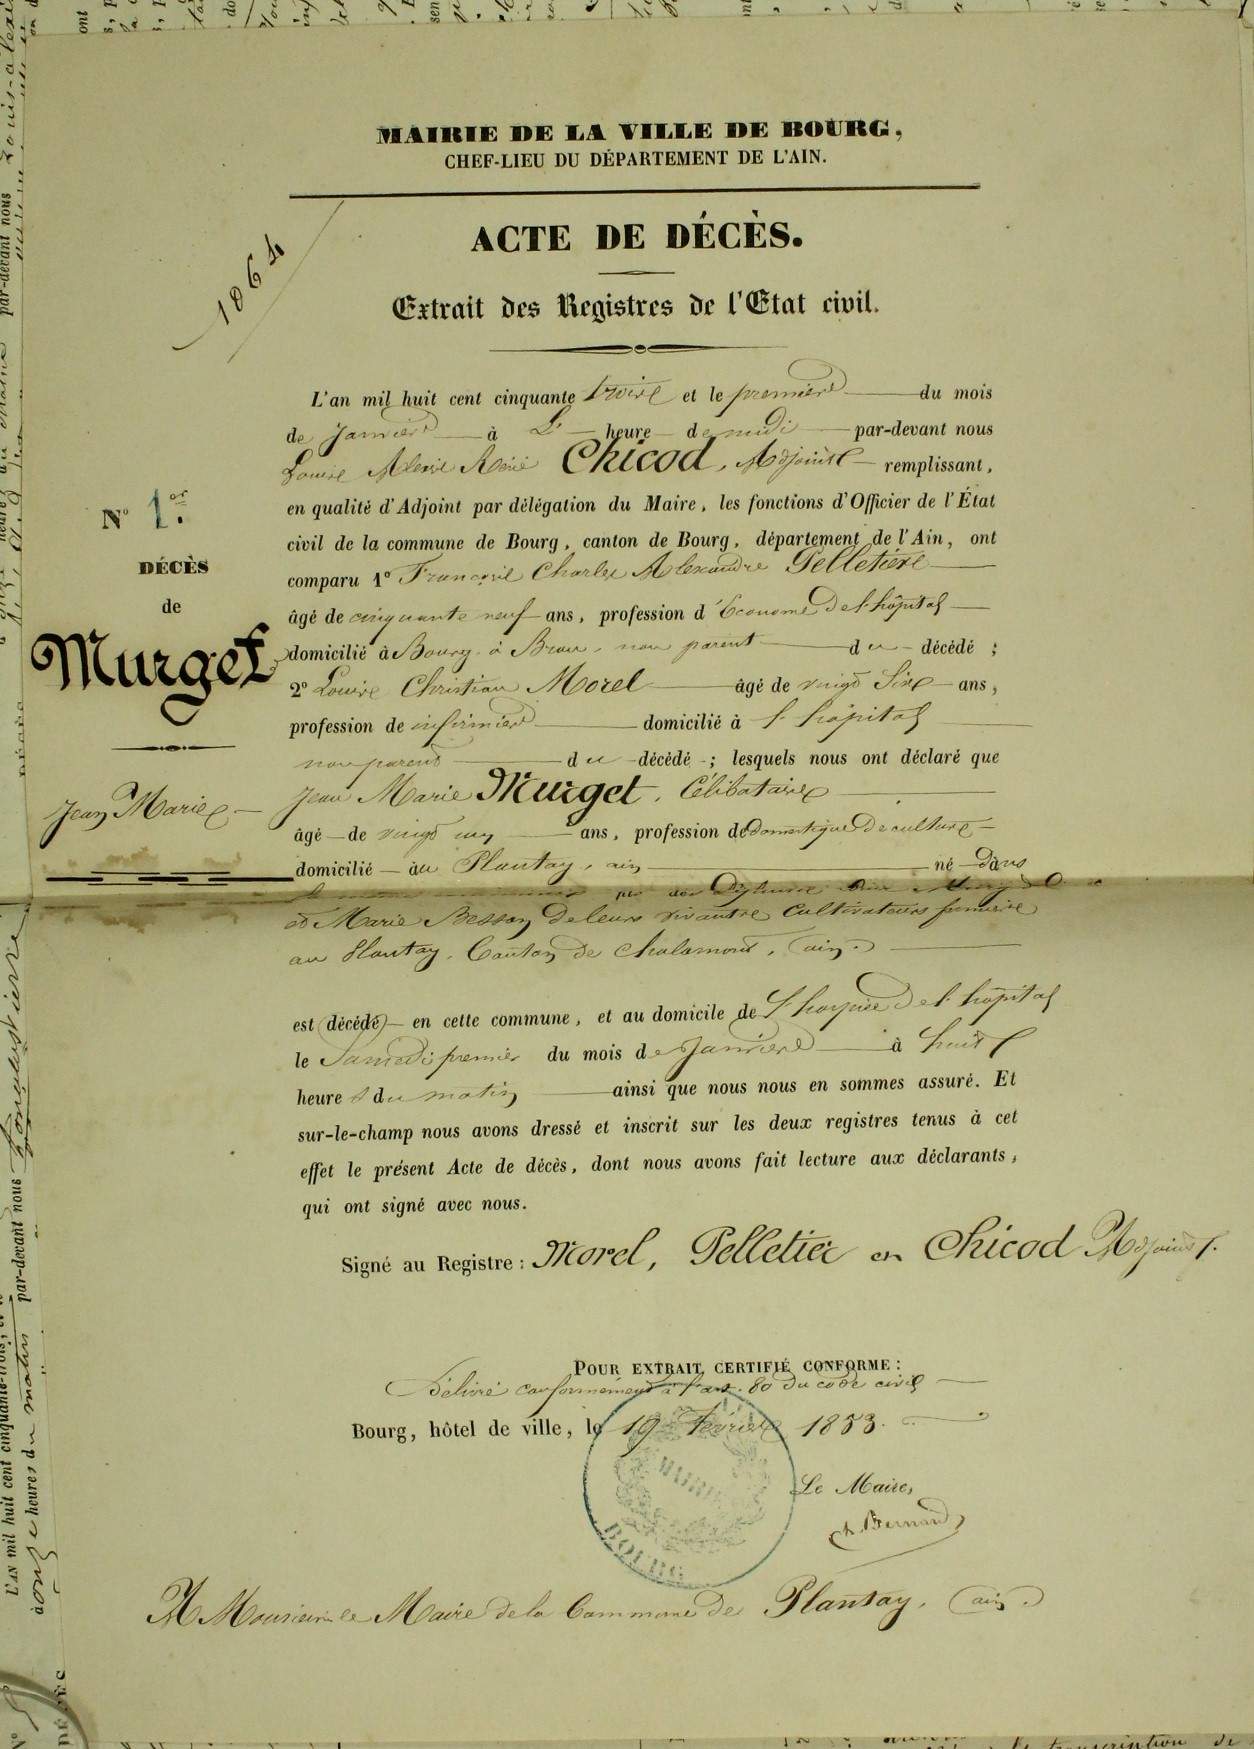 MAIRIE DE LA VILLE DE BOURG,
CHEF-LIEU DU DÉPARTEMENT DE L'AIN.
1064
ACTE DE DÉCÈS.
Extrait des Registres de l'Etat civil.
L'an mil huit cent cinquante trois et le premier du mois
de Janvier à heure de midi par-devant nous
Louis Alexis René Chicod, Adjoint remplissant,
en qualité d'Adjoint par délégation du Maire, les fonctions d'Officier de l'État
civil de la commune de Bourg, canton de Bourg, département de l'Ain, ont
comparu 1° François Charles Alexandre Pelletier
âgé de cinquante neuf ans, profession d'Econome de l'hôpital
domicilié à Bourg non parent du décédé ;
2° Louis Christian Morel âgé de vingt six ans,
profession de infirmier domicilié à l'hôpital
non parent du décédé ; lesquels nous ont déclaré que
Jean Marie Murget, Célibataire
âgé de vingt un ans, profession de domestique de culture
domicilié au Plantay, ain né dans
et Marie Besson de leurs vivants cultivateurs fermiers
au Plantay, Canton de Chalamont, (ain.)
est décédé en cette commune, et au domicile de l'hospice de l'hôpital
le Samedi premier du mois de Janvier à huit
heures du matin ainsi que nous nous en sommes assuré. Et
sur-le-champ nous avons dressé et inscrit sur les deux registres tenus à cet
effet le présent Acte de décès, dont nous avons fait lecture aux déclarants,
qui ont signé avec nous.
Signé au Registre : Morel, Pelletier et Chicod Adjoint.
N° 1er.
DÉCÈS
de
Murget
Jean Marie
POUR EXTRAIT CERTIFIÉ CONFORME :
Délivré conformément à l'art. 80 du code civil
Bourg, hôtel de ville, le 19 Février 1853.
Le Maire,
Bernard
MAIRIE
BOURG
A Monsieur le Maire de la Commune de Plantay, (ain.)